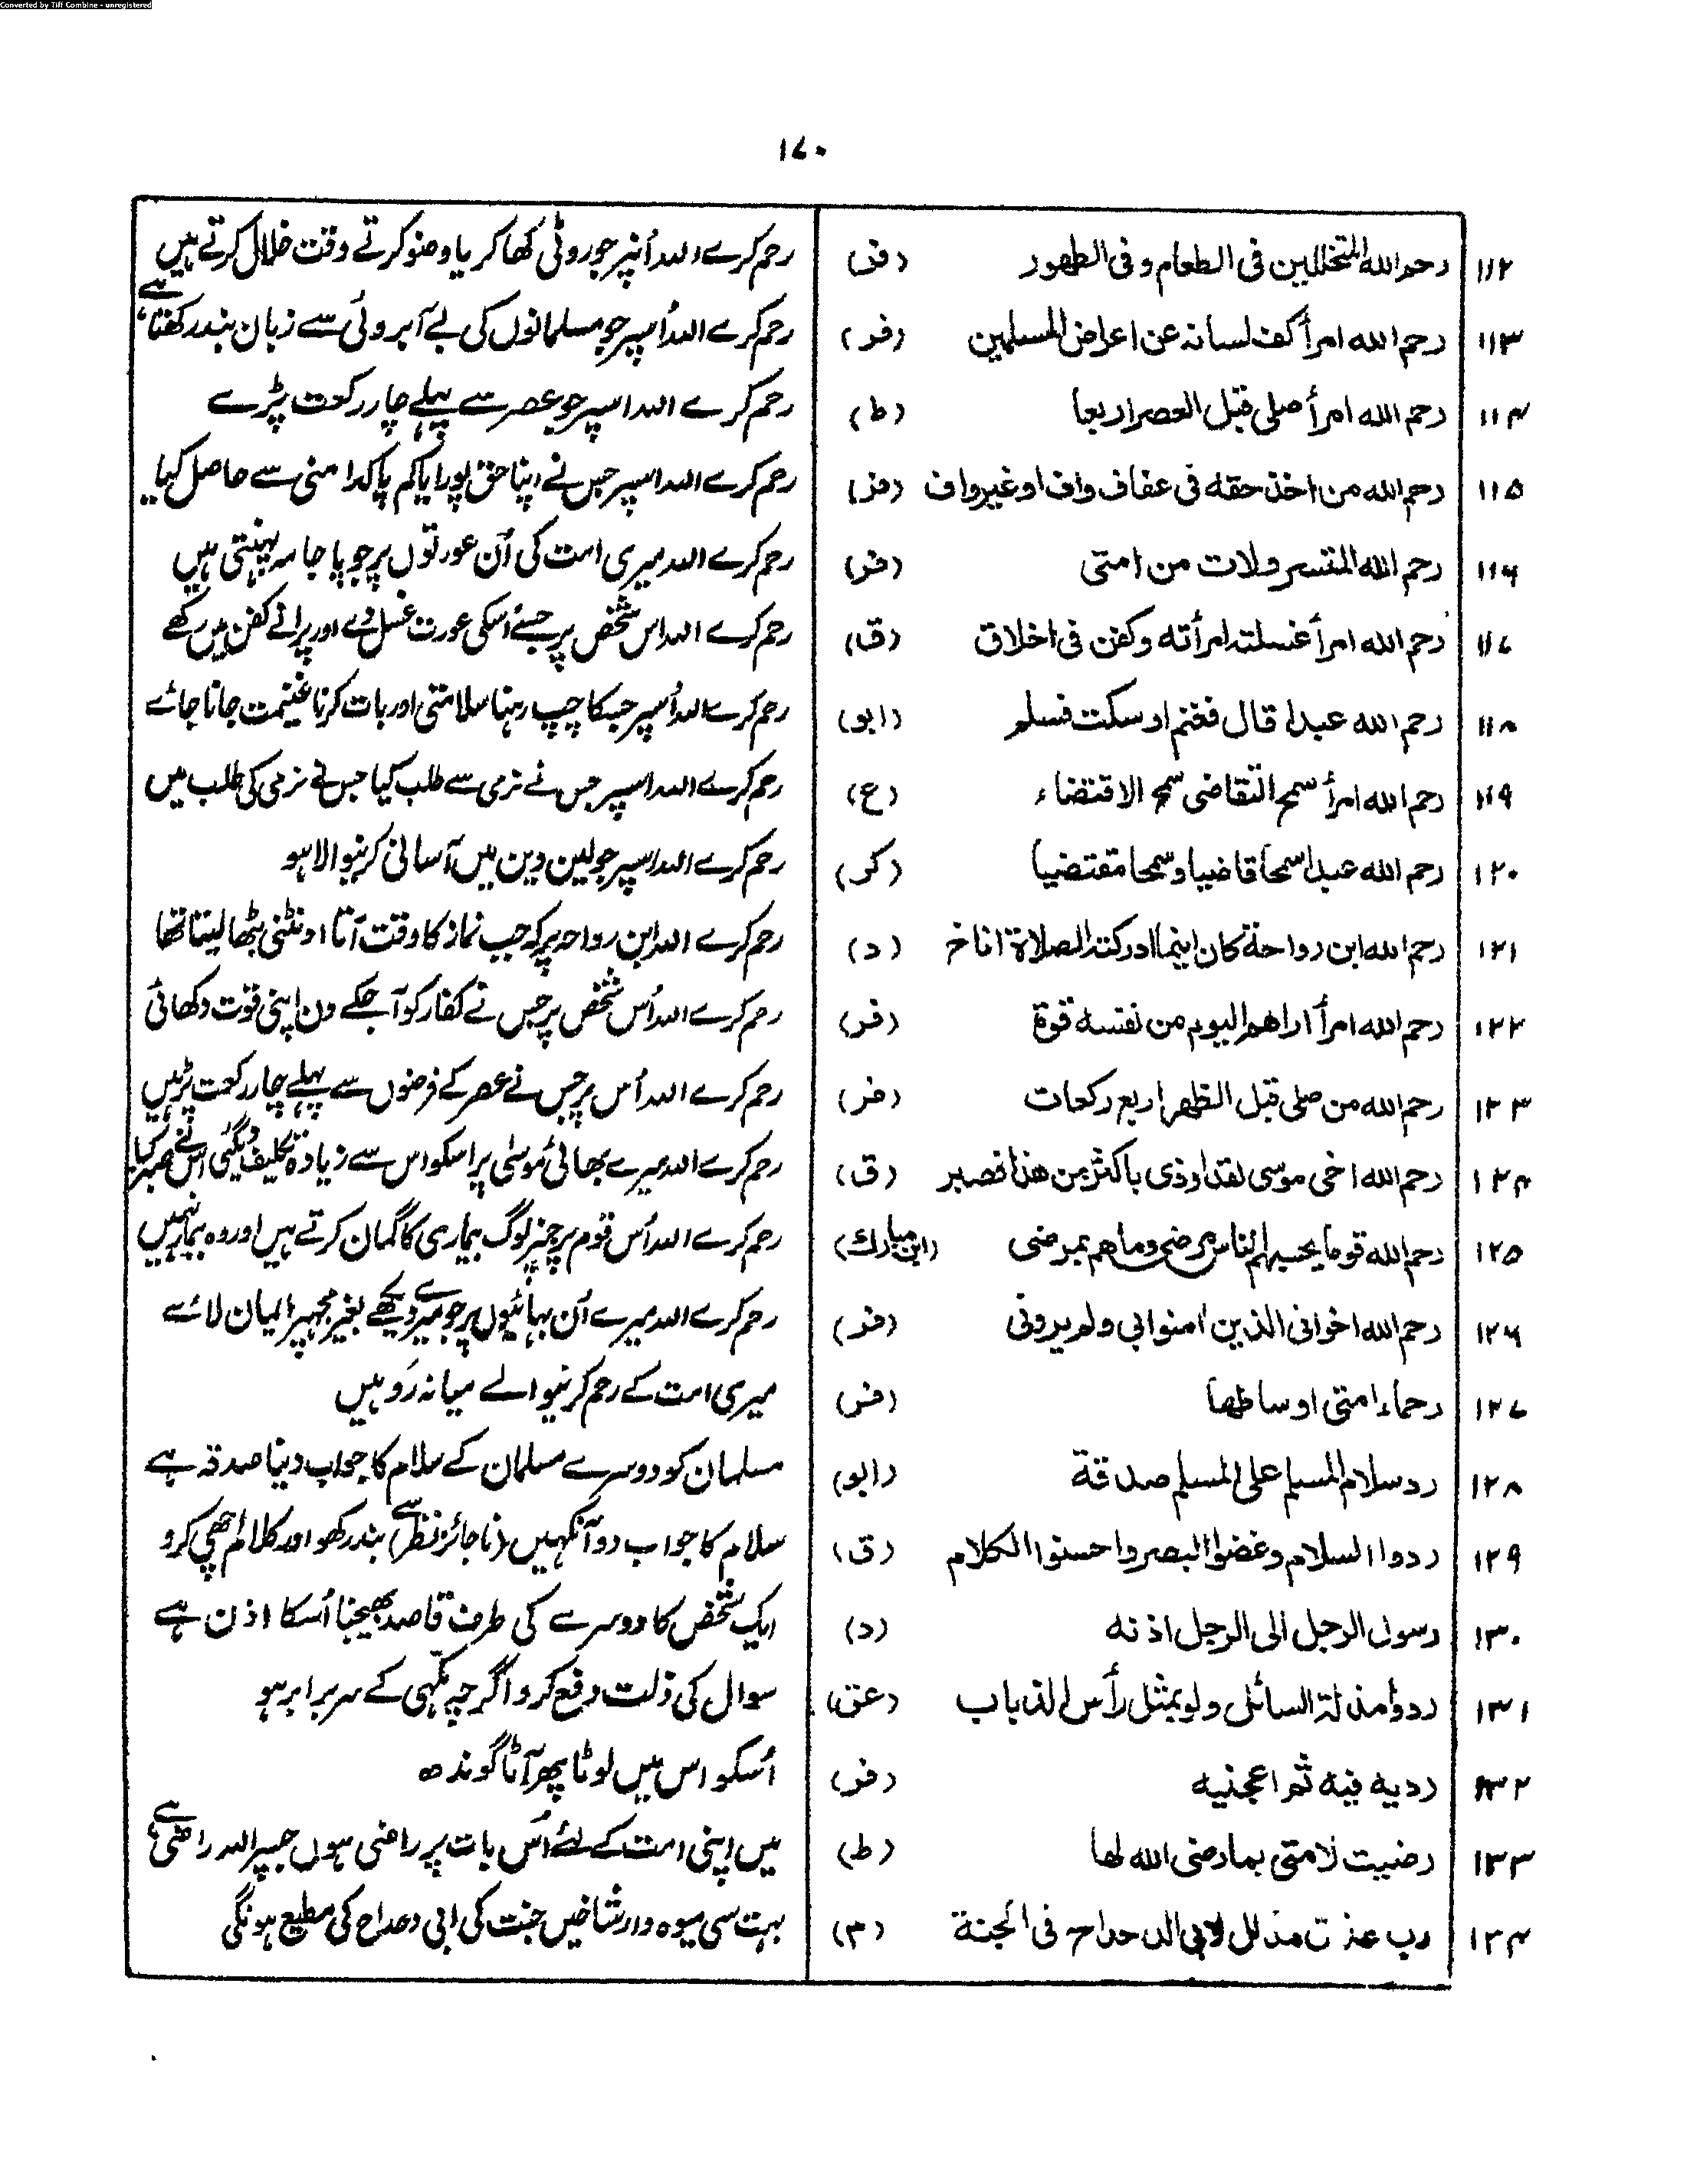 Converted by Tiff Combine - unregistered
١٧٠
١١٢ رحم الله المتخللين فى الطعام و فى الطهور (فر) رحم کرے اللہ اُنپر جو روٹی کھا کر یا وضو کرتے وقت خلال کرتے ہیں
١١٣ رحم الله امرأ كف لسانه عن اعراض المسلمين (فر) رحم کرے اللہ اُسپر جو مسلمانوں کی بے آبروئی سے زبان بند رکھتا ہے
١١٤ رحم الله امرأ صلى قبل العصر اربعا (ط) رحم کرے اللہ اسپر جو عصر سے پہلے چار رکعت پڑے
١١٥ رحم الله من اخذ حقه فى عفاف واف او غير واف (فر) رحم کرے اللہ اسپر جس نے اپنا حق پورا یا کم پاکدامنی سے حاصل کیا
١١٦ رحم الله المتسرولات من امتى (فر) رحم کرے اللہ میری امت کی اُن عورتوں پر جو پاجامہ پہنتی ہیں
١١٧ رحم الله امرأ غسلته امرأته وكفن فى اخلاق (ق) رحم کرے اللہ اس شخص پر جسے اُسکی عورت غسل دے اور پرانے کفن میں رکھے
١١٨ رحم الله عبدا قال فغنم او سكت فسلم (ابو) رحم کرے اللہ اُسپر جسکا چپ رہنا سلامتی اور بات کرنا غنیمت جانا جائے
١١٩ رحم الله امرأ سمح التقاضى سمح الاقتضاء (ع) رحم کرے اللہ اسپر جس نے نرمی سے طلب کیا جس نے نرمی کی طلب میں
١٢٠ رحم الله عبدا سمحا قاضيا وسمحا مقتضيا (كر) رحم کرے اللہ اسپر جو لین دین میں آسانی کرنیوالا ہو
١٢١ رحم الله ابن رواحة كان اينما ادركته الصلاة اناخ (د) رحم کرے اللہ ابن رواحہ پر کہ جب نماز کا وقت آتا اونٹنی بٹھا لیتا تھا
١٢٢ رحم الله امرأ اراهم اليوم من نفسه قوة (فر) رحم کرے اللہ اُس شخص پر جس نے کفار کو آجکے دن اپنی قوت دکھائی
١٢٣ رحم الله من صلى قبل الظهر اربع ركعات (فر) رحم کرے اللہ اُس پر جس نے عصر کے فرضوں سے پہلے چار رکعت پڑہیں
١٢٤ رحم الله اخى موسى لقد اوذى باكثر من هذا فصبر (ق) رحم کرے اللہ میرے بھائی موسٰی پر اسکو اس سے زیادہ تکلیف دیگئی اس نے صبر کیا
١٢٥ رحم الله قوما يحسبهم الناس مرضى وماهم بمرضى (ابن مبارك) رحم کرے اللہ اُس قوم پر جنپر لوگ بیماری کا گمان کرتے ہیں اور وہ بیمار نہیں ہیں
١٢٦ رحم الله اخوانى الذين امنوا بى ولم يرونى (فر) رحم کرے اللہ میرے اُن بہائیوں پر جو میرے دیکھے بغیر مجہپر ایمان لائے
١٢٧ رحماء امتى اوساطها (فر) میری امت کے رحم کرنیوالے میانہ رَو ہیں
١٢٨ رد سلام المسلم على المسلم صدقة (ابو) مسلمان کو دوسرے مسلمان کے سلام کا جواب دینا صدقہ ہے
١٢٩ ردوا السلام وغضوا البصر واحسنوا الكلام (ق) سلام کا جواب دو آنکہیں (ناجائز نظر سے) بند رکھو اور کلام اچھی کرو
١٣٠ رسول الرجل الى الرجل اذنه (د) ایک شخص کا دوسرے کی طرف قاصد بھیجنا اُسکا اذن ہے
١٣١ ردوا مذلة السائل ولو بمثل رأس الذباب (عق) سوال کی ذلت دفع کرو اگرچہ مکّہی کے سر برابر ہو
١٣٢ رديه فيه ثم اعجنيه (فر) اُسکو اس میں لوٹا پھر آٹا گوندھ
١٣٣ رضيت لامتى بما رضى الله لها (ط) میں اپنی امت کے لئے اُس بات پر راضی ہوں جسپر اللہ راضی ہے
١٣٤ رب عذق مذلل لابى الدحداح فى الجنة (م) بہت سی میوہ دار شاخیں جنت کی ابی دحداح کی مطیع ہونگی